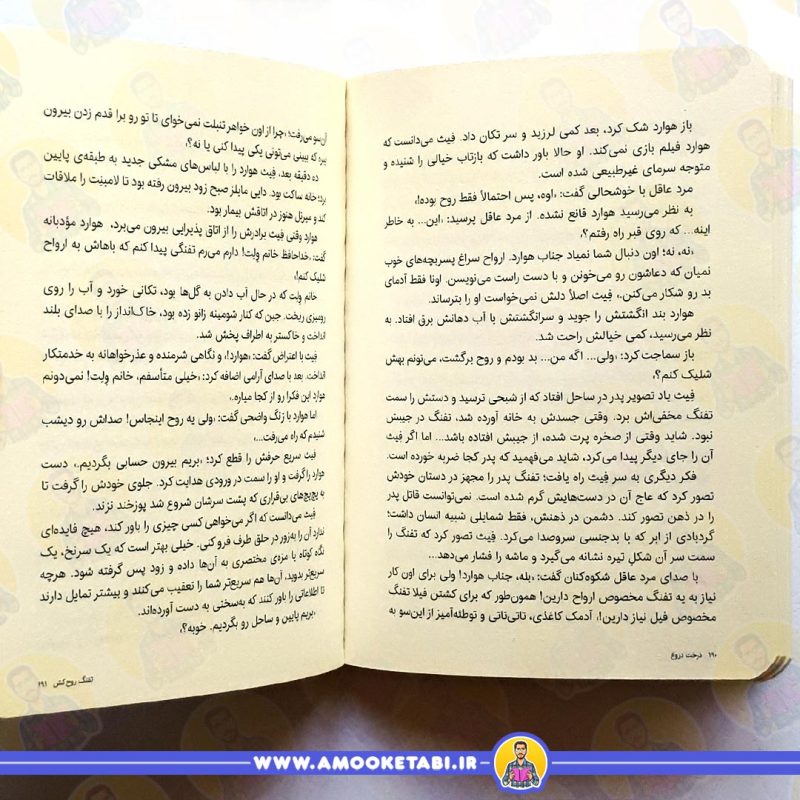 باز هوارد شک کرد، بعد کمی لرزید و سر تکان داد. فِیث می‌دانست که
هوارد فیلم بازی نمی‌کند. او حالا باور داشت که بازتاب خیالی را شنیده و
متوجه سرمای غیرطبیعی شده است.
مرد عاقل با خوشحالی گفت: «اوه، پس احتمالاً فقط روح بوده!»
به نظر می‌رسید هوارد قانع نشده. از مرد عاقل پرسید: «این... به خاطر
اینه... که روی قبر راه رفتم؟»
«نه، نه؛ اون دنبال شما نمیاد جناب هوارد. ارواح سراغ پسربچه‌های خوب
نمیان که دعاشون رو می‌خونن و با دست راست می‌نویسن. اونا فقط آدمای
بد رو شکار می‌کنن.» فِیث اصلاً دلش نمی‌خواست او را بترساند.
هوارد بند انگشتش را جوید و سرانگشتش با آب دهانش برق افتاد. به
نظر می‌رسید، کمی خیالش راحت شد.
باز سماجت کرد: «ولی... اگه من... بد بودم و روح برگشت، می‌تونم بهش
شلیک کنم؟»
فِیث یاد تصویر پدر در ساحل افتاد که از شبحی ترسید و دستش را سمت
تفنگ مخفی‌اش برد. وقتی جسدش به خانه آورده شد، تفنگ در جیبش
نبود. شاید وقتی از صخره پرت شده، از جیبش افتاده باشد... اما اگر فِیث
آن را جای دیگر پیدا می‌کرد، شاید می‌فهمید که پدر کجا ضربه خورده است.
فکر دیگری به سر فِیث راه یافت؛ تفنگ پدر را مجهز در دستان خودش
تصور کرد که عاج آن در دست‌هایش گرم شده است. نمی‌توانست قاتل پدر
را در ذهن تصور کند. دشمن در ذهنش، فقط شمایلی شبیه انسان داشت؛
گردبادی از ابر که با بدجنسی سروصدا می‌کرد. فِیث تصور کرد که تفنگ را
سمت سر آن شکلِ تیره نشانه می‌گیرد و ماشه را فشار می‌دهد...
با صدای مرد عاقل شکوه‌کنان گفت: «بله، جناب هوارد! ولی برای اون کار
نیاز به یه تفنگ مخصوص ارواح دارین! همون‌طور که برای کشتن فیلا تفنگ
مخصوص فیل نیاز دارین!» آدمک کاغذی، تاتی‌تاتی و توطئه‌آمیز از این‌سو به
۱۹۰ درخت دروغ
آن‌سو می‌رفت؛ «چرا از اون خواهر تنبلت نمی‌خوای تا تو رو برا قدم زدن بیرون
ببره که ببینی می‌تونی یکی پیدا کنی یا نه؟»
ده دقیقه بعد، فِیث هوارد را با لباس‌های مشکی جدید به طبقه‌ی پایین
برد؛ خانه ساکت بود. دایی مایلز صبح زود بیرون رفته بود تا لامبِنِت را ملاقات
کند و میرتل هنوز در اتاقش بیمار بود.
هوارد وقتی فِیث برادرش را از اتاق پذیرایی بیرون می‌برد، هوارد مؤدبانه
گفت: «خداحافظ خانم وِلِت! دارم می‌رم تفنگی پیدا کنم که باهاش به ارواح
شلیک کنم!»
خانم وِلِت که در حال آب دادن به گل‌ها بود، تکانی خورد و آب را روی
رومیزی ریخت. جین که کنار شومینه زانو زده بود، خاک‌انداز را با صدای بلند
انداخت و خاکستر به اطراف پخش شد.
فِیث با اعتراض گفت: «هوارد!» و نگاهی شرمنده و عذرخواهانه به خدمتکار
انداخت. بعد با صدای آرامی اضافه کرد: «خیلی متأسفم، خانم وِلِت! نمی‌دونم
هوارد این فکرا رو از کجا میاره.»
اما هوارد با زنگ واضحی گفت: «ولی یه روح اینجاس! صداش رو دیشب
شنیدم که راه می‌رفت...»
فِیث سریع حرفش را قطع کرد؛ «بریم بیرون حسابی بگردیم.» دست
هوارد را گرفت و او را سمت در ورودی هدایت کرد. جلوی خودش را گرفت تا
به پچ‌پچ‌های بی‌قراری که پشت سرشان شروع شد پوزخند نزند.
فِیث می‌دانست که اگر می‌خواهی کسی چیزی را باور کند، هیچ فایده‌ای
ندارد آن را به‌زور در حلق طرف فرو کنی. خیلی بهتر است که یک سرنخ، یک
نگاه کوتاه یا مزه‌ی مختصری به آن‌ها داده و زود پس گرفته شود. هرچه
سریع‌تر بدوید، آن‌ها هم سریع‌تر شما را تعقیب می‌کنند و بیشتر تمایل دارند
تا اطلاعاتی را باور کنند که به‌سختی به دست آورده‌اند.
«بریم پایین و ساحل رو بگردیم. خوبه؟»
تفنگ روح‌کش ۱۹۱
WWW.AMOOKETABI.IR